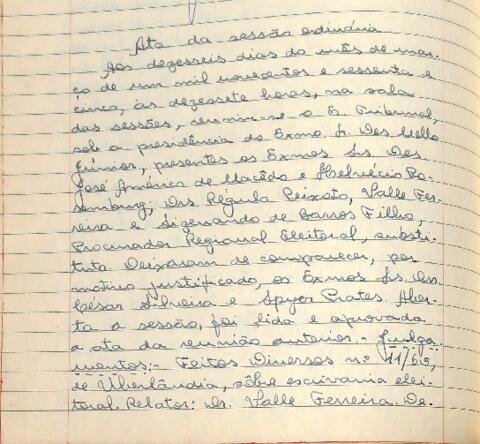 Ata da sessão ordinária
Aos dezesseis dias do mês de mar-
ço de um mil novecentos e sessenta e
cinco, às dezessete horas, na sala
das sessões, reuniu-se o E. Tribunal,
sob a presidência do Exmo. Sr. Des. Mello
Júnior, presentes os Exmos Srs. Des.
José Américo de Macêdo e Helvécio Ro-
semburg; Drs. Régulo Peixoto, Valle Fer-
reira e Sizenando de Barros Filho,
Procurador Regional Eleitoral, substi-
tuto. Deixaram de comparecer, por
motivo justificado, os Exmos Srs. Drs.
César Silveira e Spyer Prates. Aber-
ta a sessão, foi lida e aprovada
a ata da reunião anterior. - Julga
mentos:- Feitos Diversos nº 11/65,
de Uberlândia, sôbre escrivania elei-
toral. Relator: Dr. Valle Ferreira. De-